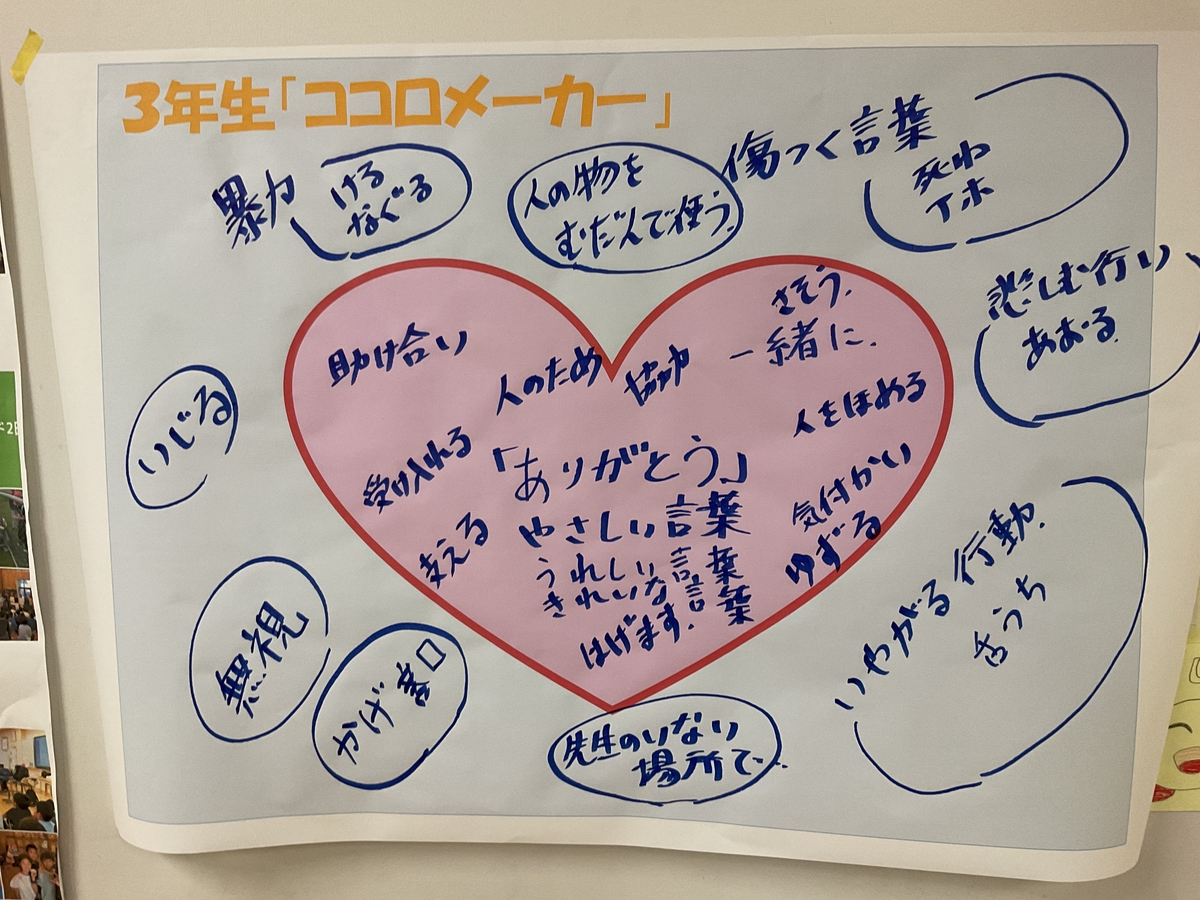 3年生「ココロメーカー」
暴力
ける
なぐる
人の物を
むだんで使う。
傷つく言葉
死ね
アホ
悲しむ行い
あおる
いじる
無視
かげ口
先生のいない
場所で…
いやがる行動
舌うち
助け合い
人のため
協力
さそう。
一緒に。
人をほめる
受け入れる
「ありがとう」
気付かい
支える
やさしい言葉
ゆずる
うれしい言葉
きれいな言葉
はげます。